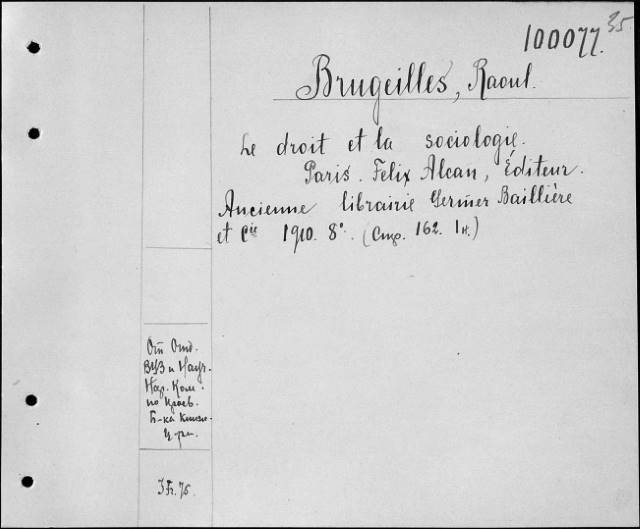 35
100077.
Brugeilles, Raoul.
Le droit et la sociologie.
Paris. Felix Alcan, Éditeur.
Ancienne librairie Germer Baillière
et Cie 1910. 8°. (Стр. 162. 1 н.)
От Отд.
ВУЗ и Науч.
Нар. Ком.
по Просв.
Б-ка